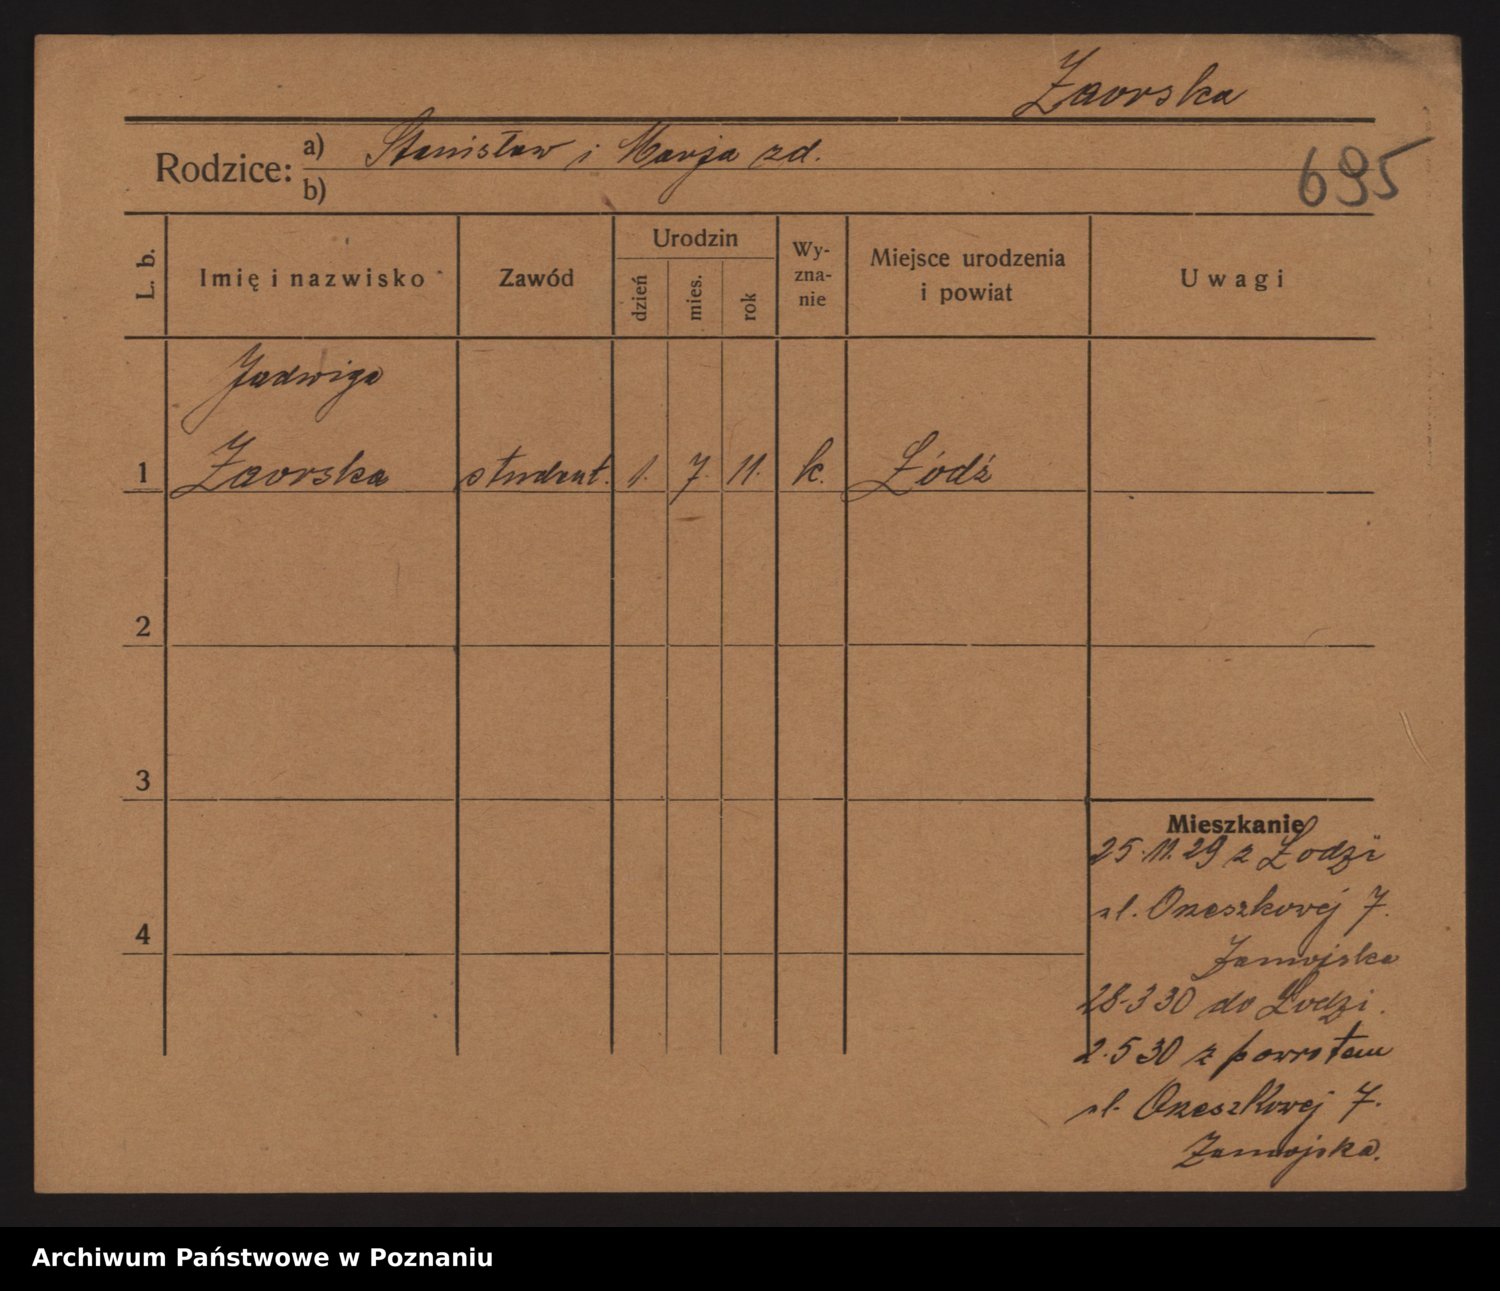 Zaorska
Rodzice: a) Stanisław i Marja zd.
b)
695
L. b. Imię i nazwisko Zawód Urodzin dzień mies. rok Wy-zna-nie Miejsce urodzenia i powiat Uwagi
Jadwiga
1 Zaorska student. 1. 7. 11. k. Łódź
2
3
Mieszkanie
25.11.29 z Łodzi
ul. Orzeszkowej 7.
4
Zamojska
28-3 30 do Łodzi.
2.5 30 z powrotem
ul. Orzeszkowej 7.
Zamojska.
Archiwum Państwowe w Poznaniu